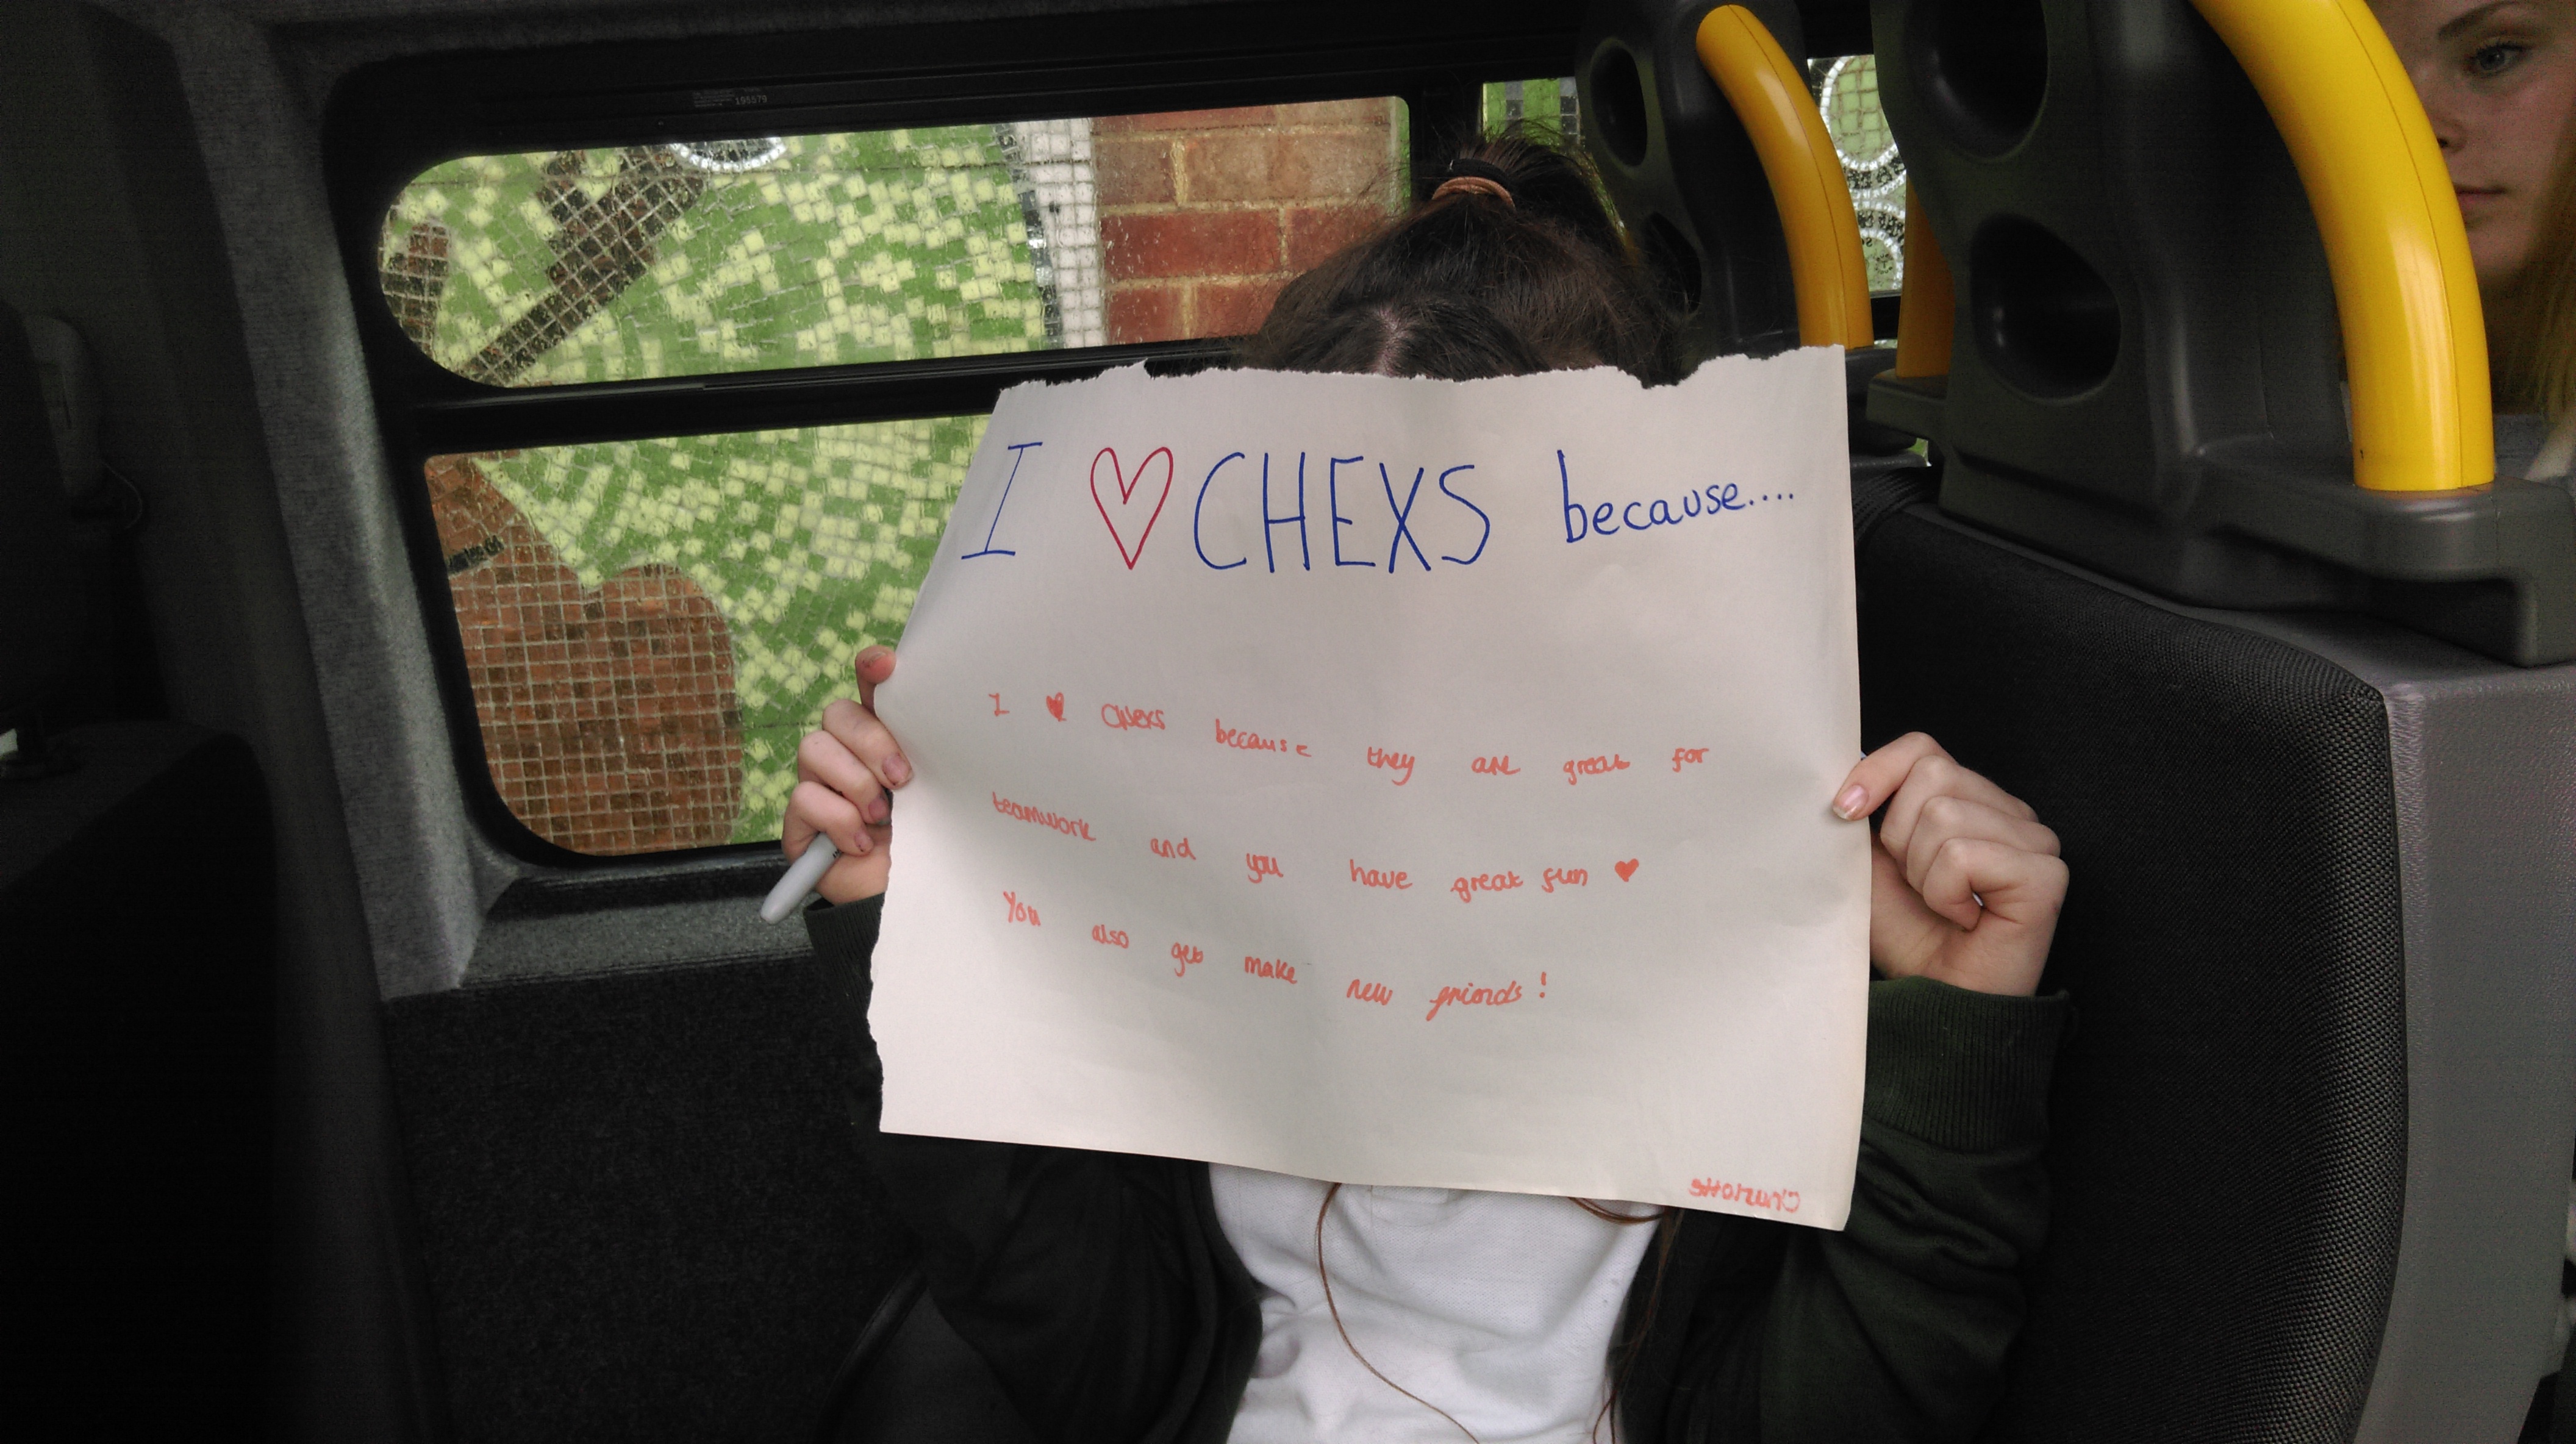 I ♡ CHEXS because....
I ♥ CHEXS because they are great for
teamwork and you have great fun ♥
You also get make new friends!
Charlotte
195579